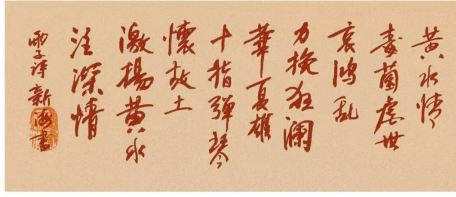 黄水情
毒菌虐世
哀鸿乱
力挽狂澜
華夏雄
十指弹琴
懷故土
激揚黄水
注深情
雨子诗新海書